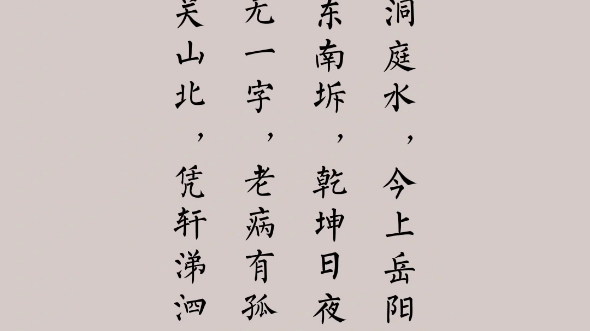 洞庭水，今上岳阳
东南坼，乾坤日夜
无一字，老病有孤
关山北，凭轩涕泗